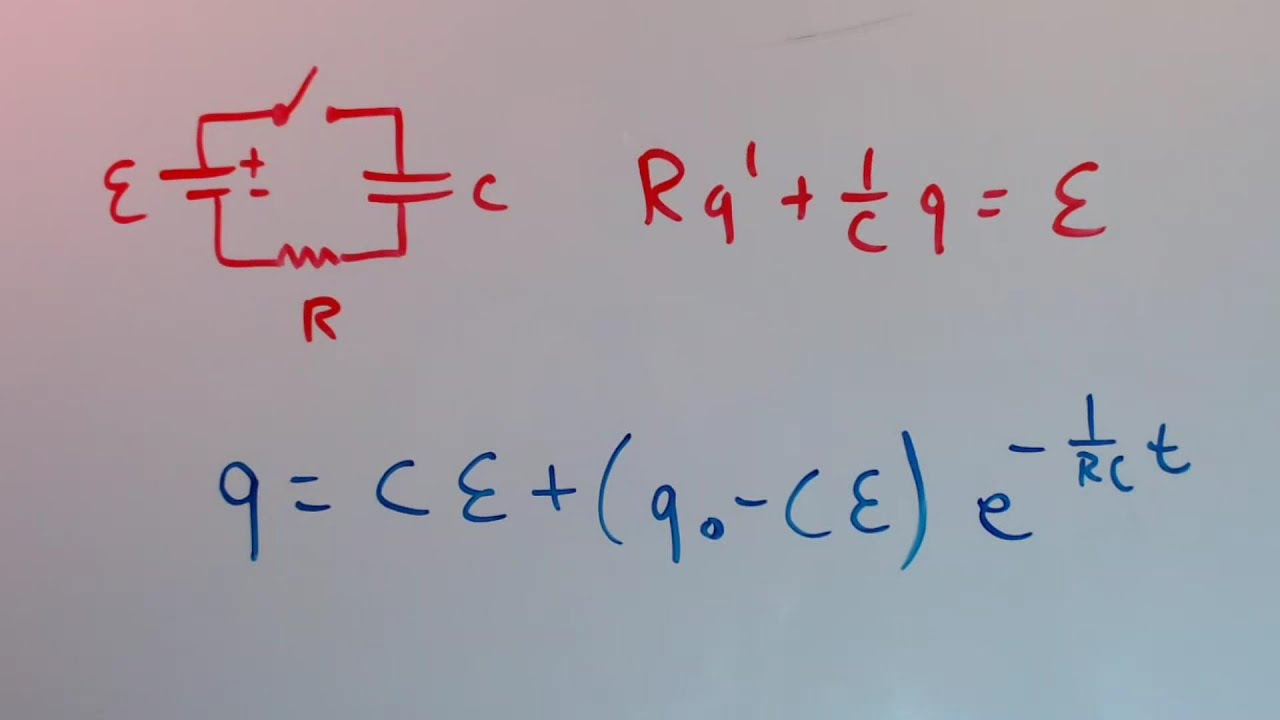 ℰ + - C
R
Rq' + 1/C q = ℰ
q = Cℰ + (q₀ - Cℰ) e^(-1/RC t)